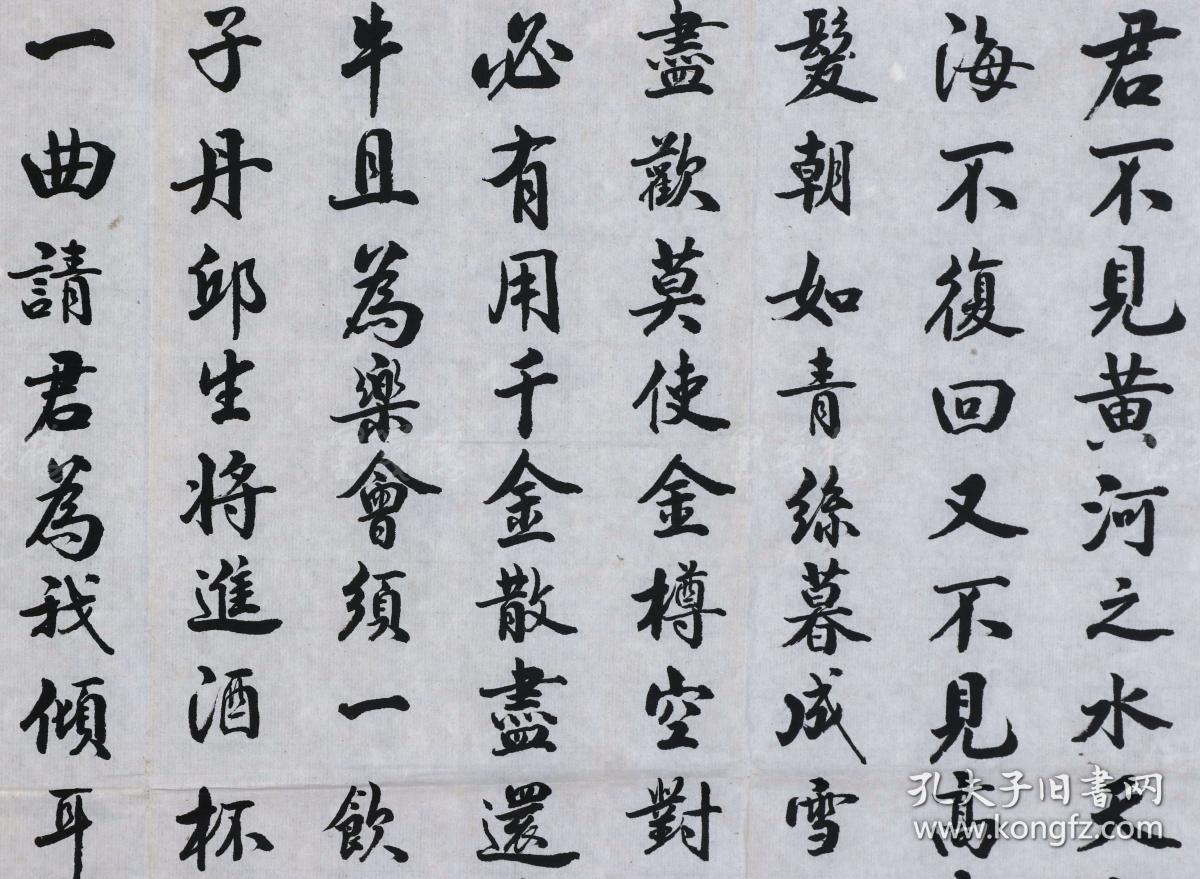 君不見黄河之水天
海不復回又不見高
髮朝如青絲暮成雪
盡歡莫使金樽空對
必有用千金散盡還
牛且為樂會須一飲
子丹邱生将進酒杯
一曲請君為我傾耳
孔夫子旧書网
www.kongfz.com